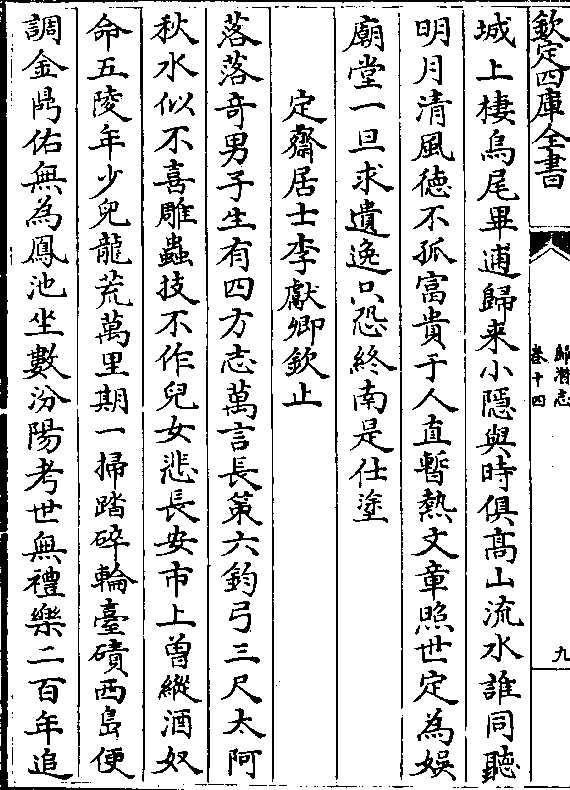 欽定四庫全書
歸潛志
卷十四
九
城上棲烏尾畢逋歸来小隱與時俱高山流水誰同聽
明月清風徳不孤富貴于人直暫熱文章照世定為娯
廟堂一旦求遺逸只恐終南是仕塗
定齋居士李獻卿欽止
落落竒男子生有四方志萬言長策六鈞弓三尺太阿
秋水似不喜雕蟲技不作兒女悲長安市上曽縱酒奴
命五陵年少兒龍荒萬里期一掃踏碎輪臺磧西島便
調金鼎佑無為鳳池坐數汾陽考世無禮樂二百年追